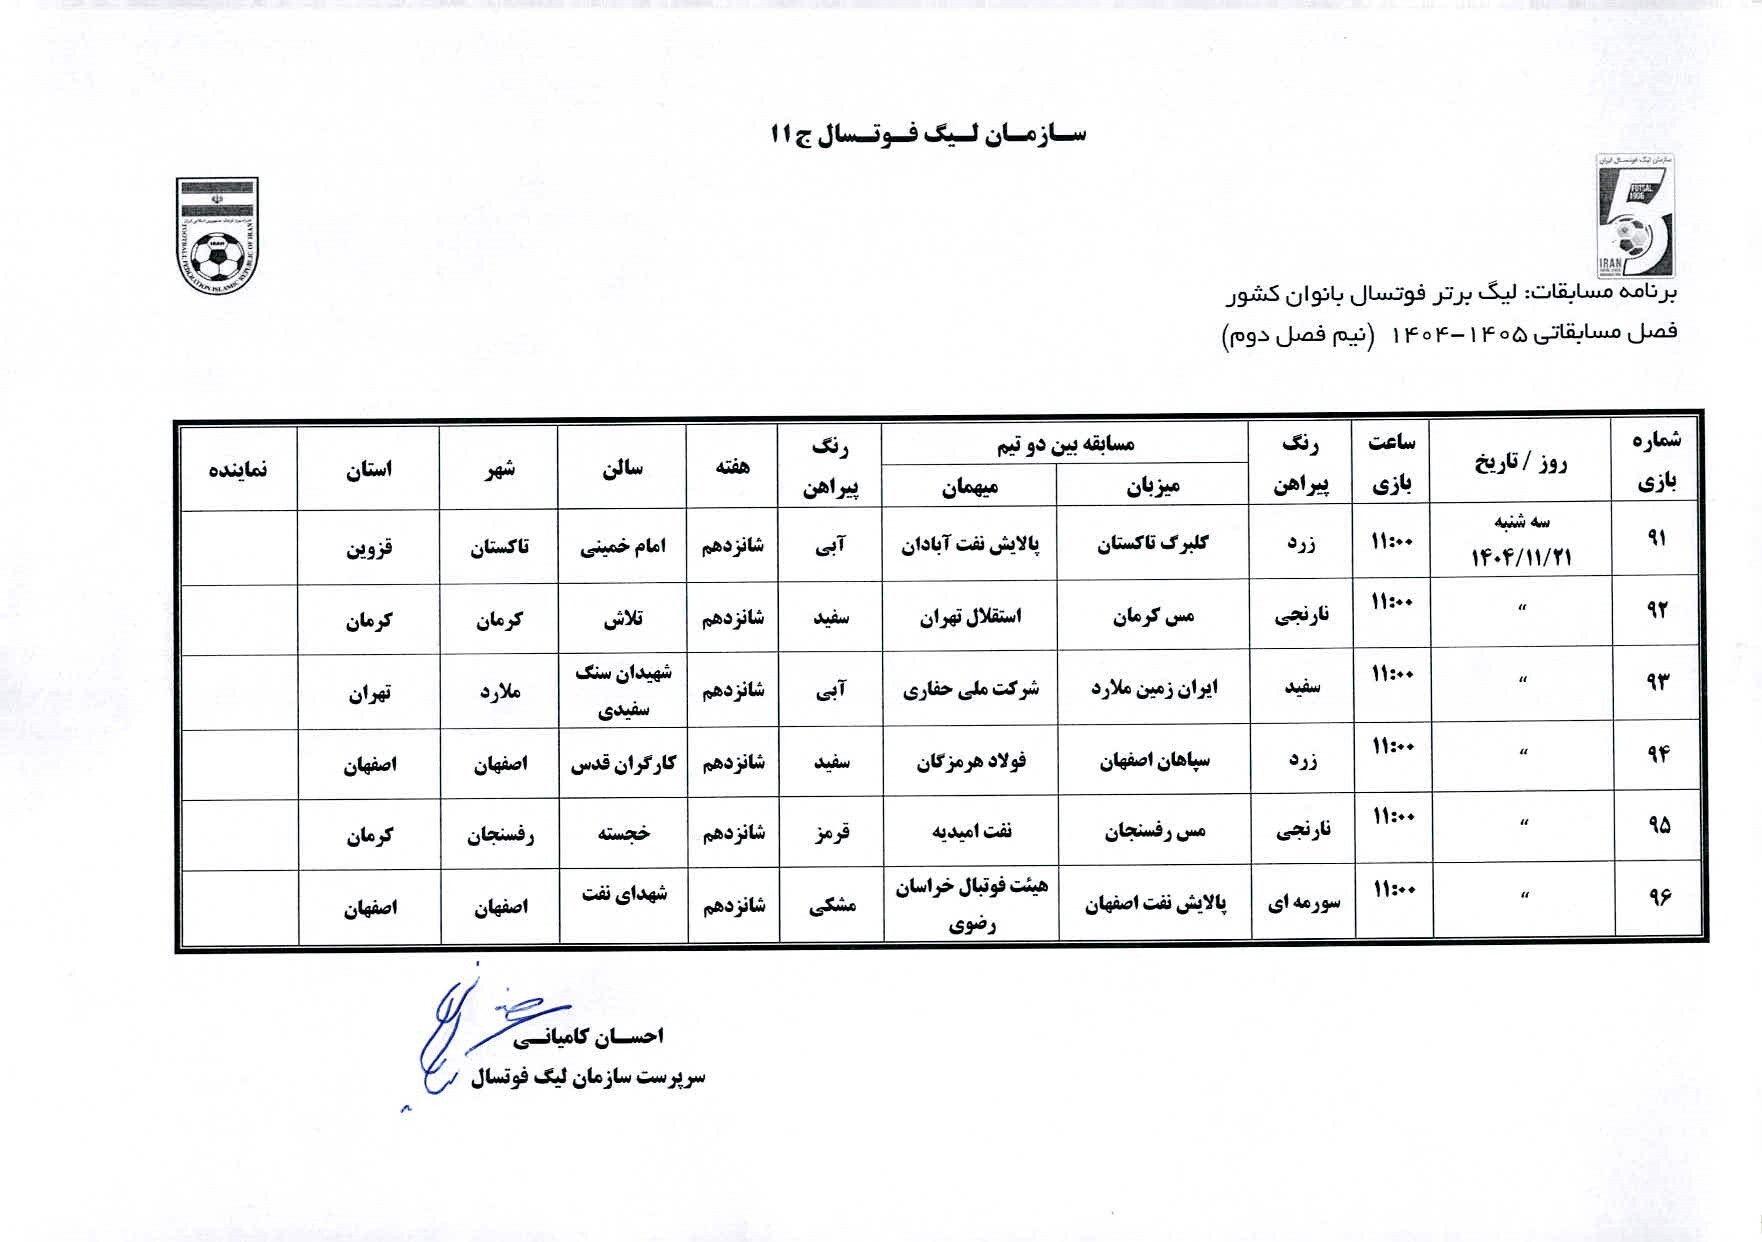 سازمان لیگ فوتسال ج ا ا
سازمان لیگ فوتسال ایران
FUTSAL
1906
5
IRAN
IRAN
FOOTBALL FEDERATION ISLAMIC REPUBLIC OF IRAN
برنامه مسابقات: لیگ برتر فوتسال بانوان کشور
فصل مسابقاتی ۱۴۰۵-۱۴۰۴ (نیم فصل دوم)
شماره بازی | روز / تاریخ | ساعت بازی | رنگ پیراهن | مسابقه بین دو تیم | رنگ پیراهن | هفته | سالن | شهر | استان | نماینده
میزبان | میهمان
۹۱ | سه شنبه ۱۴۰۴/۱۱/۲۱ | ۱۱:۰۰ | زرد | گلبرگ تاکستان | پالایش نفت آبادان | آبی | شانزدهم | امام خمینی | تاکستان | قزوین
۹۲ | “ | ۱۱:۰۰ | نارنجی | مس کرمان | استقلال تهران | سفید | شانزدهم | تلاش | کرمان | کرمان
۹۳ | “ | ۱۱:۰۰ | سفید | ایران زمین ملارد | شرکت ملی حفاری | آبی | شانزدهم | شهیدان سنگ سفیدی | ملارد | تهران
۹۴ | “ | ۱۱:۰۰ | زرد | سپاهان اصفهان | فولاد هرمزگان | سفید | شانزدهم | کارگران قدس | اصفهان | اصفهان
۹۵ | “ | ۱۱:۰۰ | نارنجی | مس رفسنجان | نفت امیدیه | قرمز | شانزدهم | خجسته | رفسنجان | کرمان
۹۶ | “ | ۱۱:۰۰ | سورمه ای | پالایش نفت اصفهان | هیئت فوتبال خراسان رضوی | مشکی | شانزدهم | شهدای نفت | اصفهان | اصفهان
احسان کامیانی
سرپرست سازمان لیگ فوتسال